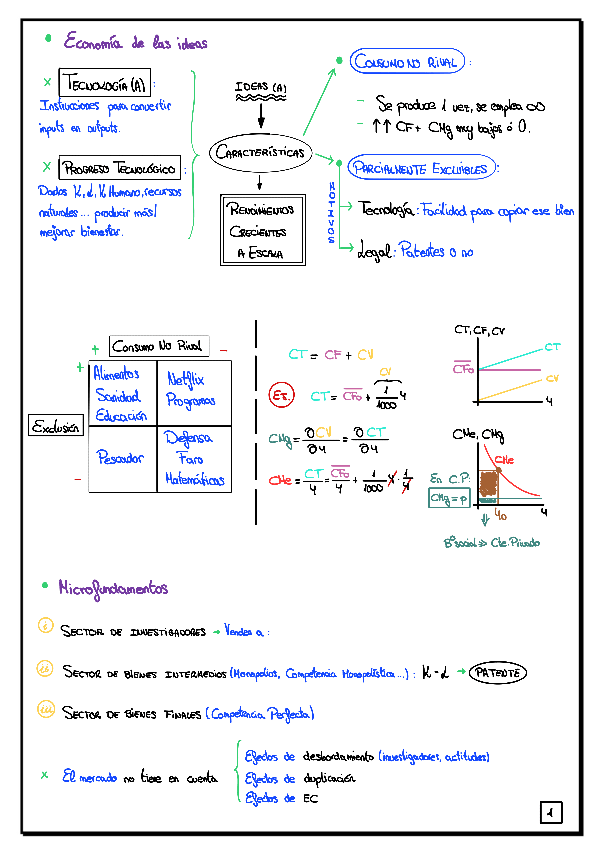 Economía de las ideas
x TECNOLOGÍA (A):
Instrucciones para convertir
inputs en outputs.
x PROGRESO TECNOLÓGICO:
Dados K, L, K Humano, recursos
naturales... producir más/
mejorar bienestar.
IDEAS (A)
CARACTERÍSTICAS
RENDIMIENTOS
CRECIENTES
A ESCALA
CONSUMO NO RIVAL:
- Se produce 1 vez, se emplea ∞
- ↑↑ CF + CMg muy bajos ó 0.
PARCIALMENTE EXCLUIBLES:
MOTIVOS
→ Tecnología: Facilidad para copiar ese bien
→ Legal: Patentes o no
+ Consumo No Rival -
+
Exclusión
-
Alimentos
Sanidad
Educación
Netflix
Programas
Pescador
Defensa
Faro
Matemáticas
CT = CF + CV
CV
EJ. CT = CF₀ + 1/1000 y
CMg = ∂CV/∂y = ∂CT/∂y
CMe = CT/y = CF₀/y + 1/1000 y · 1/y
CT, CF, CV
CT
CF₀
CV
y
CMe, CMg
CMe
En C.P:
CMg = P
y₀
y
Bº social >> Cte. Privado
Microfundamentos
i SECTOR DE INVESTIGADORES → Venden a:
ii SECTOR DE BIENES INTERMEDIOS (Monopolios, Competencia Monopolística...): K - L → PATENTE
iii SECTOR DE BIENES FINALES (Competencia Perfecta)
x El mercado no tiene en cuenta
Efectos de desbordamiento (investigadores, actitudes)
Efectos de duplicación
Efectos de EC
1